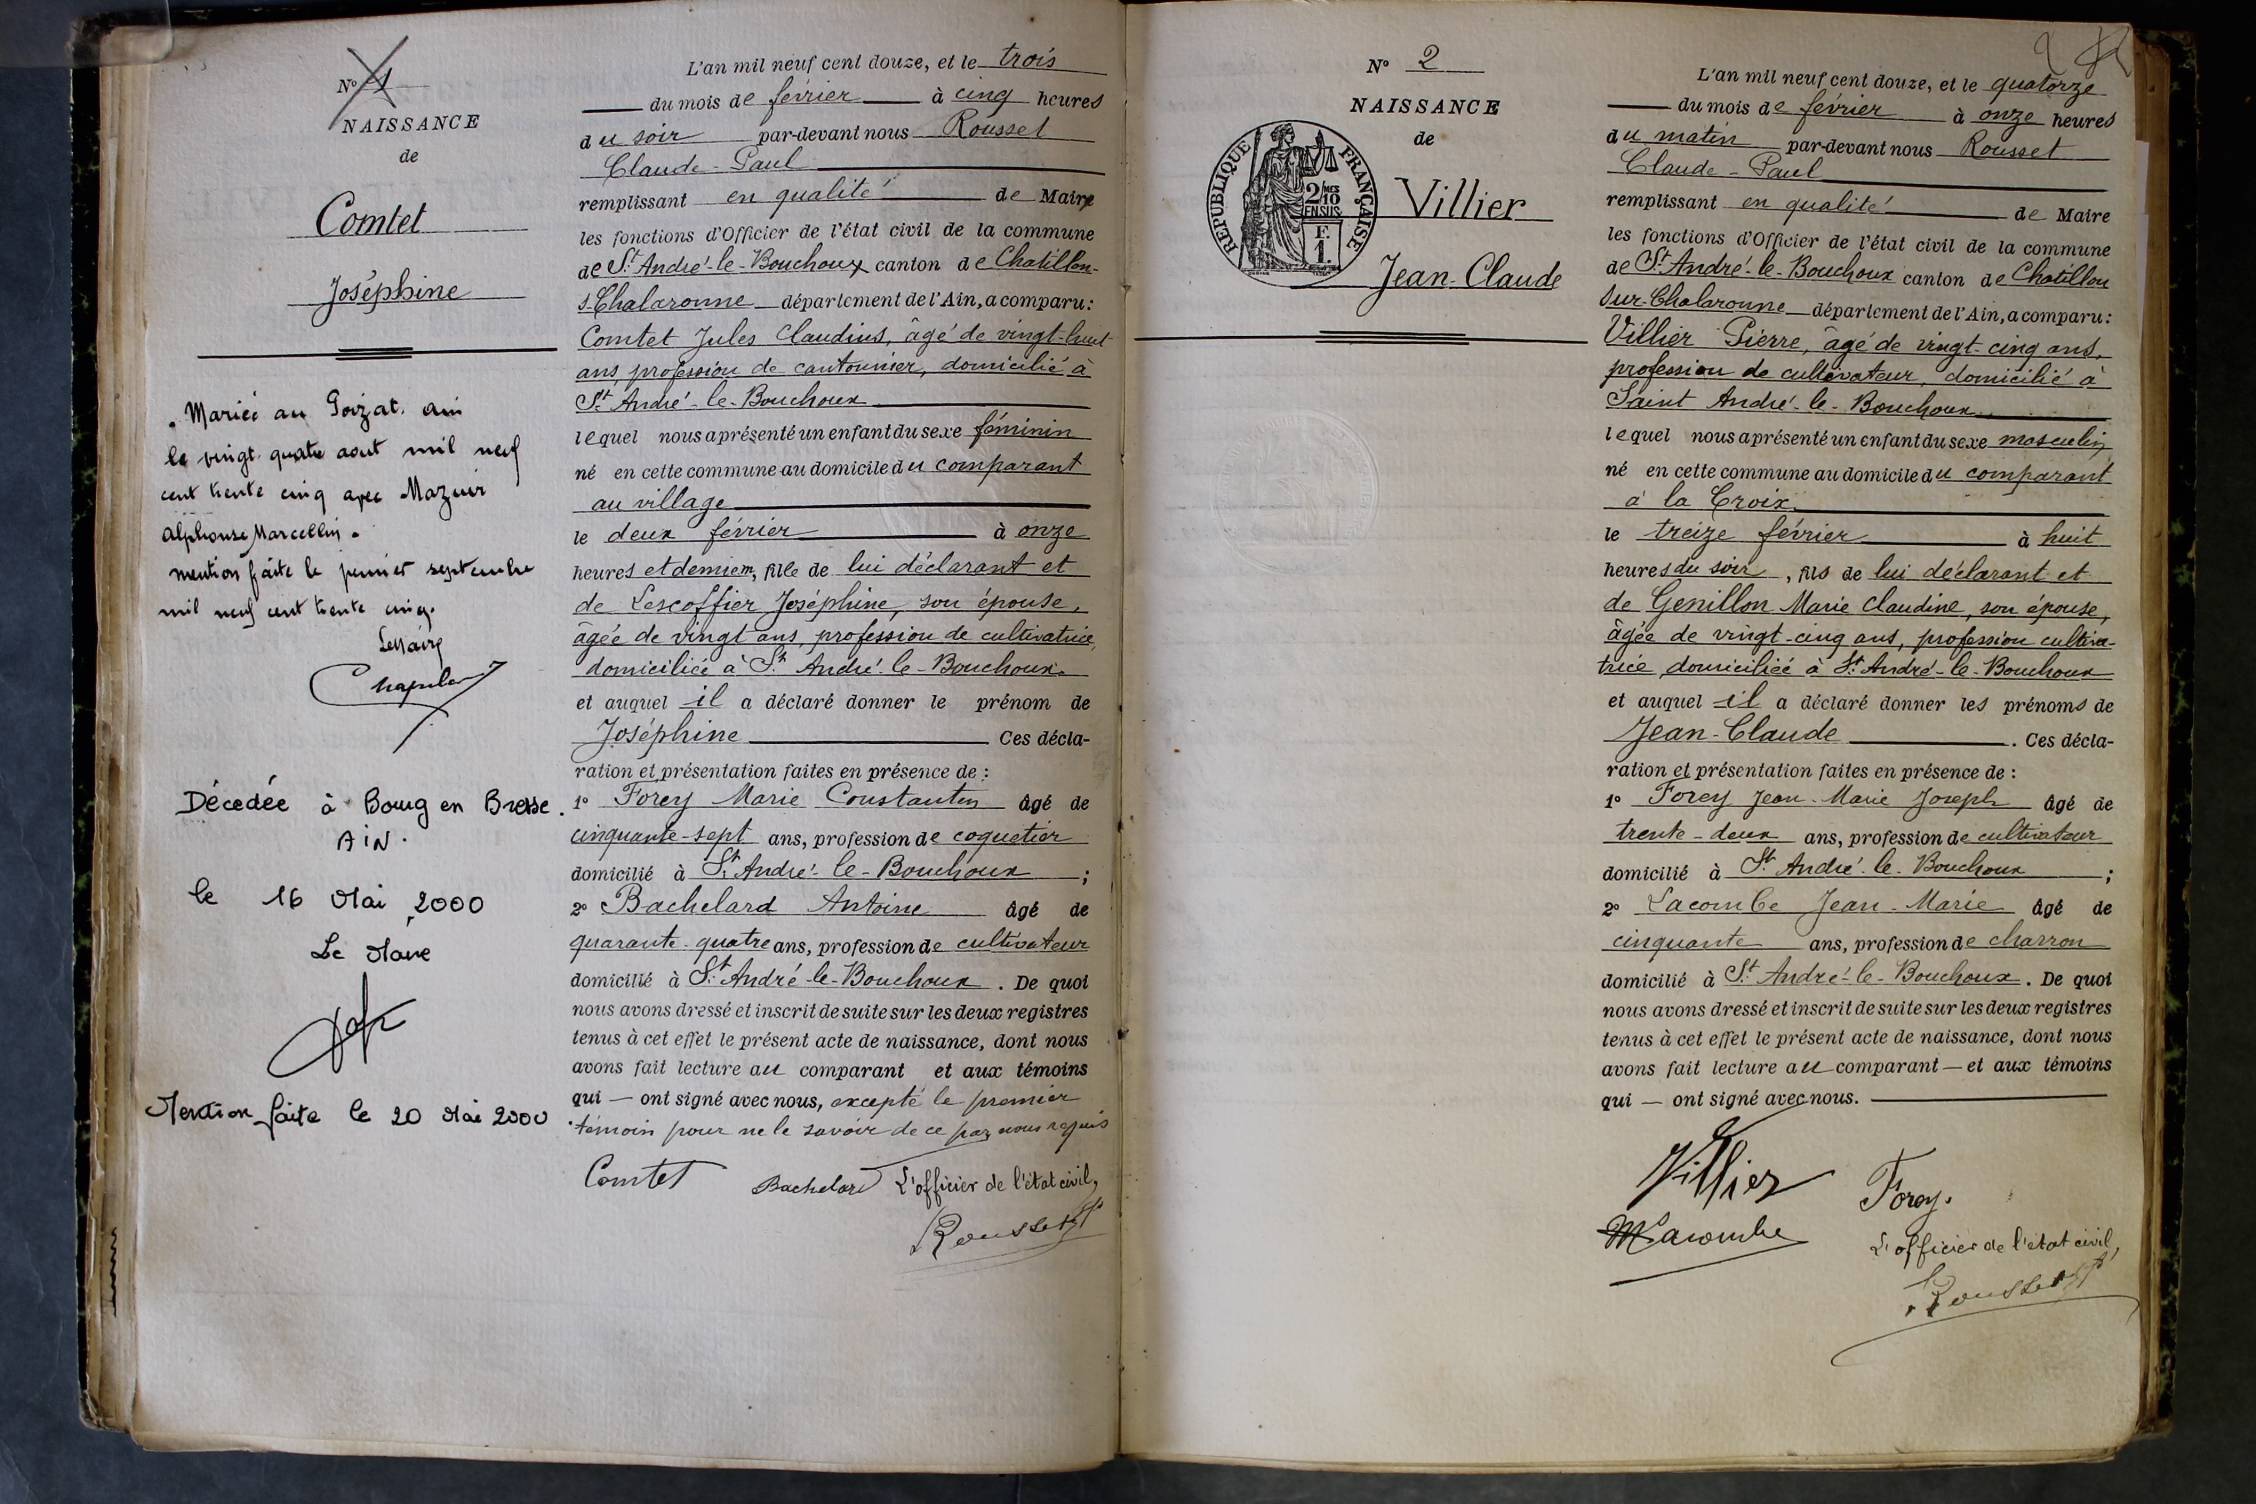 Nº 1
NAISSANCE
de
Comtet
Joséphine
Mariée au Poizat. ain
le vingt quatre aout mil neuf
cent trente cinq avec Mazuir
Alphonse Marcellin.
mention faite le premier septembre
mil neuf cent trente cinq.
Le Maire
Décedée à Bourg en Bresse.
AIN.
le 16 Mai 2000
Le Maire
Mention faite le 20 Mai 2000
L'an mil neuf cent douze, et le trois
du mois de février à cinq heures
du soir par-devant nous Rousset
Claude-Paul
remplissant en qualité de Maire
les fonctions d'Officier de l'état civil de la commune
de St André-le-Bouchoux canton de Chatillon-
s-Chalaronne département de l'Ain, a comparu :
Comtet Jules Claudius, âgé de vingt-huit
ans, profession de cantonnier, domicilié à
St André-le-Bouchoux
lequel nous a présenté un enfant du sexe féminin
né en cette commune au domicile du comparant
au village
le deux février à onze
heures et demie m, fille de lui déclarant et
de Lescoffier Joséphine, son épouse,
âgée de vingt ans, profession de cultivatrice,
domiciliée à St André-le-Bouchoux.
et auquel il a déclaré donner le prénom de
Joséphine Ces décla-
ration et présentation faites en présence de :
1º Forey Marie Constantin âgé de
cinquante-sept ans, profession de coquetier
domicilié à St André-le-Bouchoux ;
2º Bachelard Antoine âgé de
quarante-quatre ans, profession de cultivateur
domicilié à St André-le-Bouchoux. De quoi
nous avons dressé et inscrit de suite sur les deux registres
tenus à cet effet le présent acte de naissance, dont nous
avons fait lecture au comparant et aux témoins
qui — ont signé avec nous, excepté le premier
témoin pour ne le savoir de ce par nous requis
Comtet Bachelard L'officier de l'état civil,
Rousset
Nº 2
NAISSANCE
de
RÉPUBLIQUE FRANÇAISE
2/10 MES
EN SUS
F.
1.
Villier
Jean-Claude
L'an mil neuf cent douze, et le quatorze
du mois de février à onze heures
du matin par-devant nous Rousset
Claude-Paul
remplissant en qualité de Maire
les fonctions d'Officier de l'état civil de la commune
de St André-le-Bouchoux canton de Chatillon
sur-Chalaronne département de l'Ain, a comparu :
Villier Pierre, âgé de vingt-cinq ans,
profession de cultivateur, domicilié à
Saint André-le-Bouchoux
lequel nous a présenté un enfant du sexe masculin
né en cette commune au domicile du comparant
à la Croix.
le treize février à huit
heures du soir, fils de lui déclarant et
de Genillon Marie Claudine, son épouse,
âgée de vingt-cinq ans, profession cultiva-
trice, domiciliée à St André-le-Bouchoux
et auquel il a déclaré donner les prénoms de
Jean-Claude . Ces décla-
ration et présentation faites en présence de :
1º Forey Jean-Marie Joseph âgé de
trente-deux ans, profession de cultivateur
domicilié à St André-le-Bouchoux ;
2º Lacombe Jean-Marie âgé de
cinquante ans, profession de charron
domicilié à St André-le-Bouchoux. De quoi
nous avons dressé et inscrit de suite sur les deux registres
tenus à cet effet le présent acte de naissance, dont nous
avons fait lecture au comparant — et aux témoins
qui — ont signé avec nous.
Villier Forey.
Lacombe
L'officier de l'état civil,
Rousset